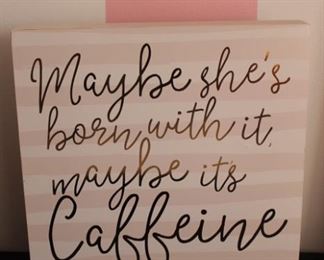 Maybe she's
born with it,
maybe it's
Caffeine